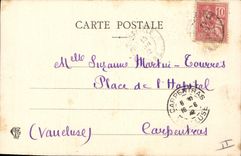 CARTE POSTALE
10
Mlle Suzanne Martin-Tourres
Place de l'Hopital
CARPENTRAS
(Vaucluse) Carpentras
II